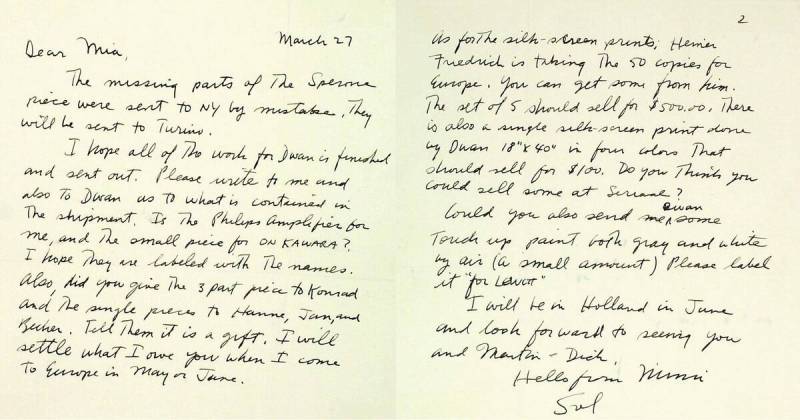 March 27
Dear Mia,
The missing parts of The Sperone
piece were sent to NY by mistake. They
will be sent to Turino.
I hope all of the work for Dwan is finished
and sent out. Please write to me and
also to Dwan as to what is contained in
The shipment. Is The Philips Amplifier for
me, and The small piece for ON KAWARA?
I hope They are labeled with The names.
Also, did you give The 3 part piece to Konrad
and The single pieces to Hanne, Jan, and
Becher. Tell Them it is a gift. I will
settle what I owe you when I come
to Europe in May or June.
2
As for The silk-screen prints; Heiner
Friedrich is taking The 50 copies for
Europe. You can get some from him.
The set of 5 should sell for $500.00. There
is also a single silk-screen print done
by Dwan 18"x40" in four colors That
should sell for $100. Do you Think you
could sell some at
Could you also send me, some
Touch up paint both gray and white
by air (a small amount) Please label
it "for LeWitt"
I will be in Holland in June
and look forward to seeing you
and Martin - Dich.
Hello from Mimi
Sol